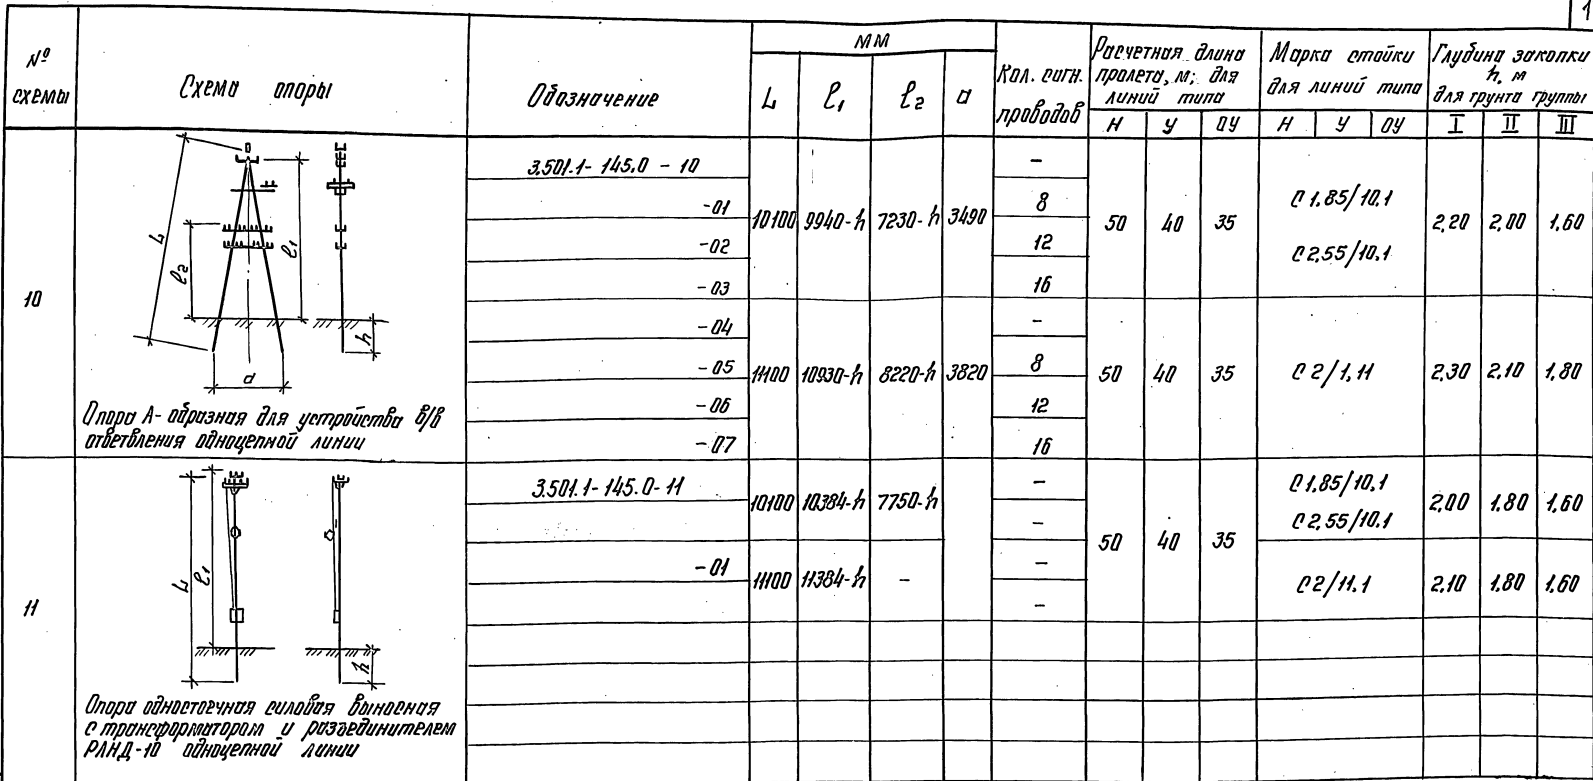 1
№ схемы
Схема опоры
Обозначение
мм
L
ℓ1
ℓ2
а
Кол. сигн. проводов
Расчетная длина
пролета, м; для
линий типа
Н У ОУ
Марка стойки
для линий типа
Н У ОУ
Глубина закопки
h, м
для грунта группы
I II III
10
L
ℓ2
ℓ1
h
а
Опора А-образная для устройства в/в
ответвления одноцепной линии
3.501.1-145.0-10 -
-01 8
-02 12
-03 16
10100 9940-h 7230-h 3490
50 40 35
С 1.85/10.1
С 2,55/10.1
2,20 2,00 1,60
-04 -
-05 8
-06 12
-07 16
11100 10930-h 8220-h 3820
50 40 35
С 2/1,11
2,30 2,10 1,80
11
L
ℓ1
h
Опора одностоечная силовая выносная
с трансформатором и разъединителем
РЛНД-10 одноцепной линии
3.501.1-145.0-11 -
-
10100 10384-h 7750-h
С 1,85/10.1
С 2,55/10.1
2,00 1,80 1,60
50 40 35
-01 -
-
11100 11384-h -
С 2/11.1
2,10 1,80 1,60